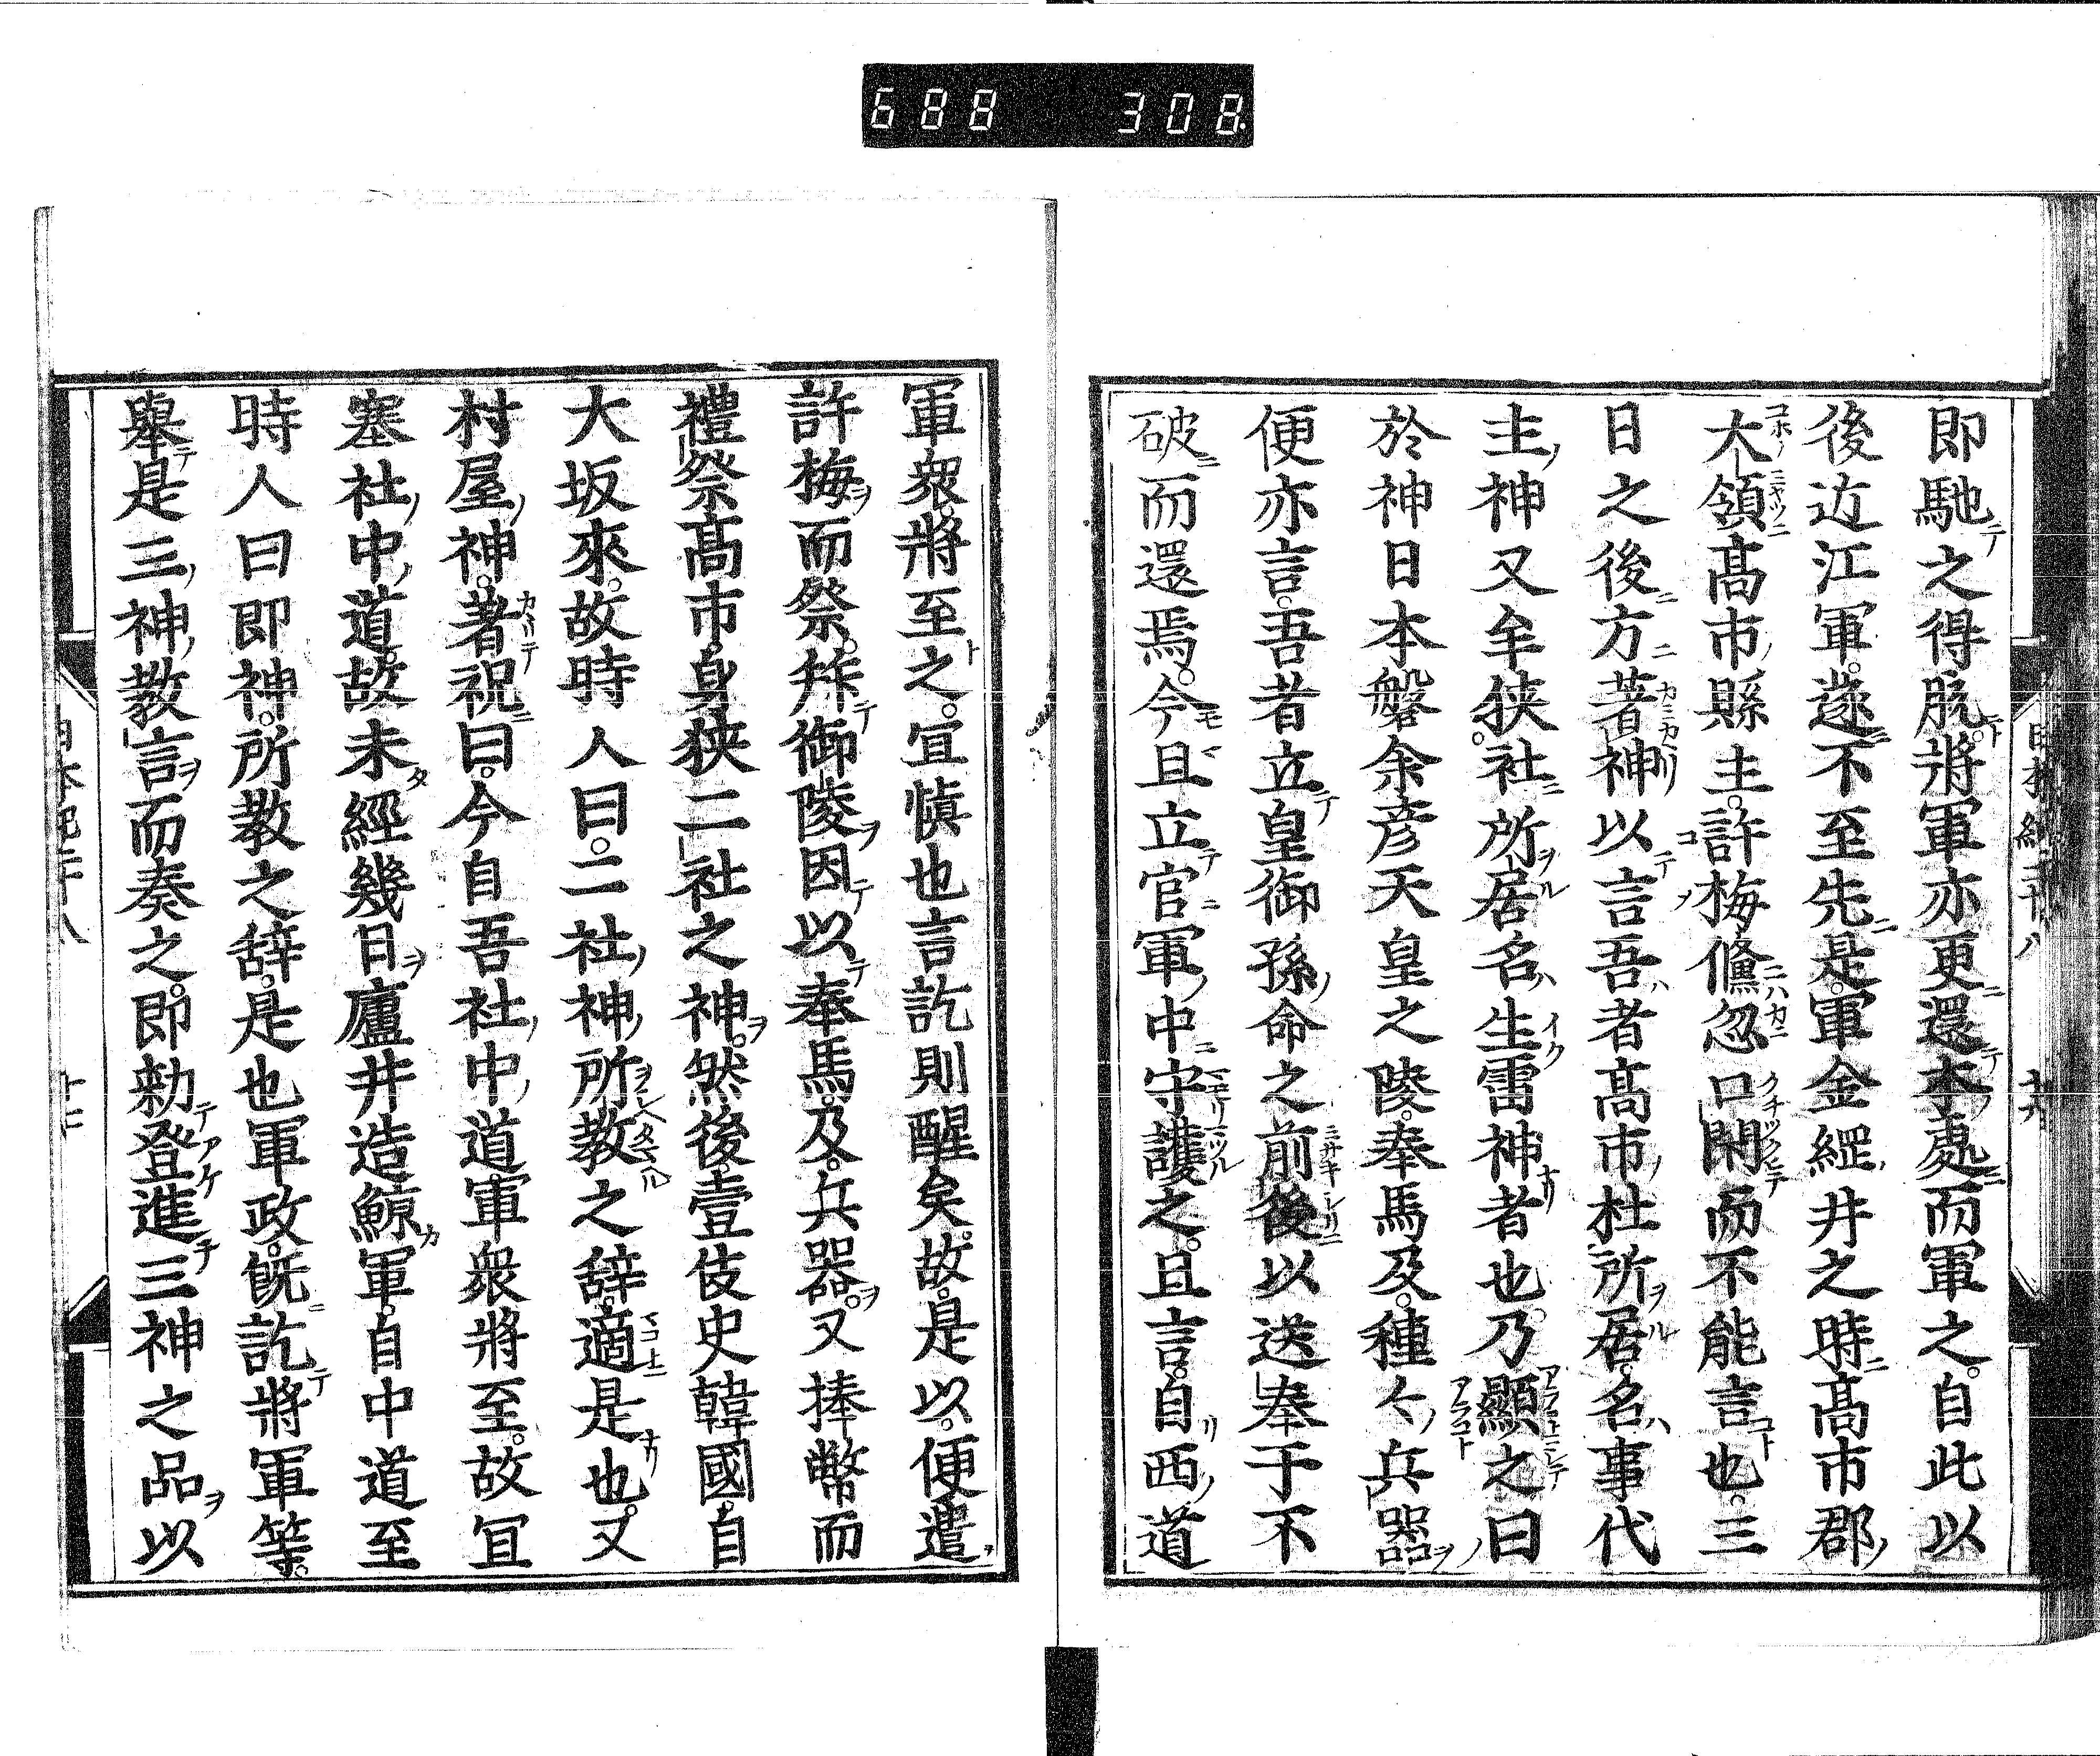 688 308
即馳之得脱將軍亦更還本處而軍之自此以
後近江軍遂不至先是軍金綱井之時髙市郡
大領髙市縣主許梅儵忽口閇而不能言也三
日之後方著神以言吾者髙市杜所居名事代
主神又牟狭社所居名生雷神者也乃顯之曰
於神日本磐余彦天皇之陵奉馬及種々兵器
便亦言吾者立皇御孫命之前後以送奉于不
破而還焉今且立官軍中守護之且言自西道
軍衆將至之宜愼也言訖則醒矣故是以便遣
許梅而祭拜御陵因以奉馬及兵器又捧幣而
禮祭髙市身狭二社之神然後壹伎史韓國自
大坂來故時人曰二社神所教之辞適是也又
村屋神著祝曰今自吾社中道軍衆將至故宜
塞社中道故未經幾日廬井造鯨軍自中道至
時人曰即神所教之辞是也軍政既訖將軍等
舉是三神教言而奏之即勅登進三神之品以